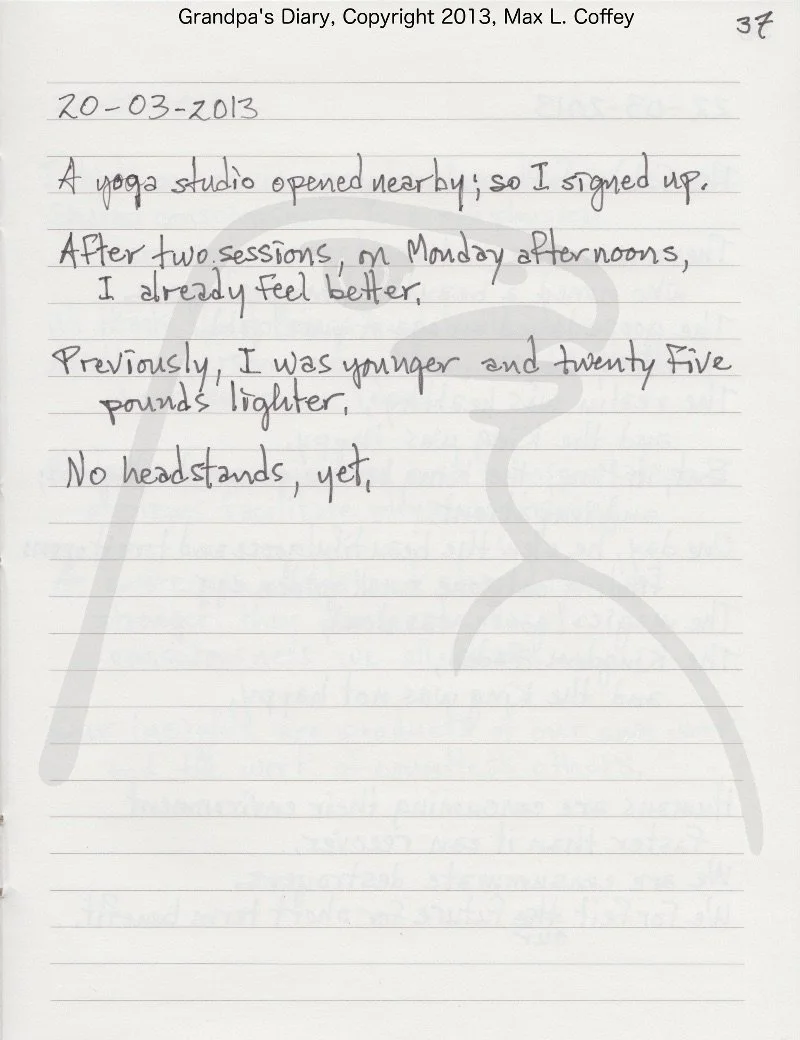 Grandpa's Diary, Copyright 2013, Max L. Coffey
37
20-03-2013
A yoga studio opened nearby; so I signed up.
After two sessions, on Monday afternoons,
I already feel better.
Previously, I was younger and twenty five
pounds lighter.
No headstands, yet.